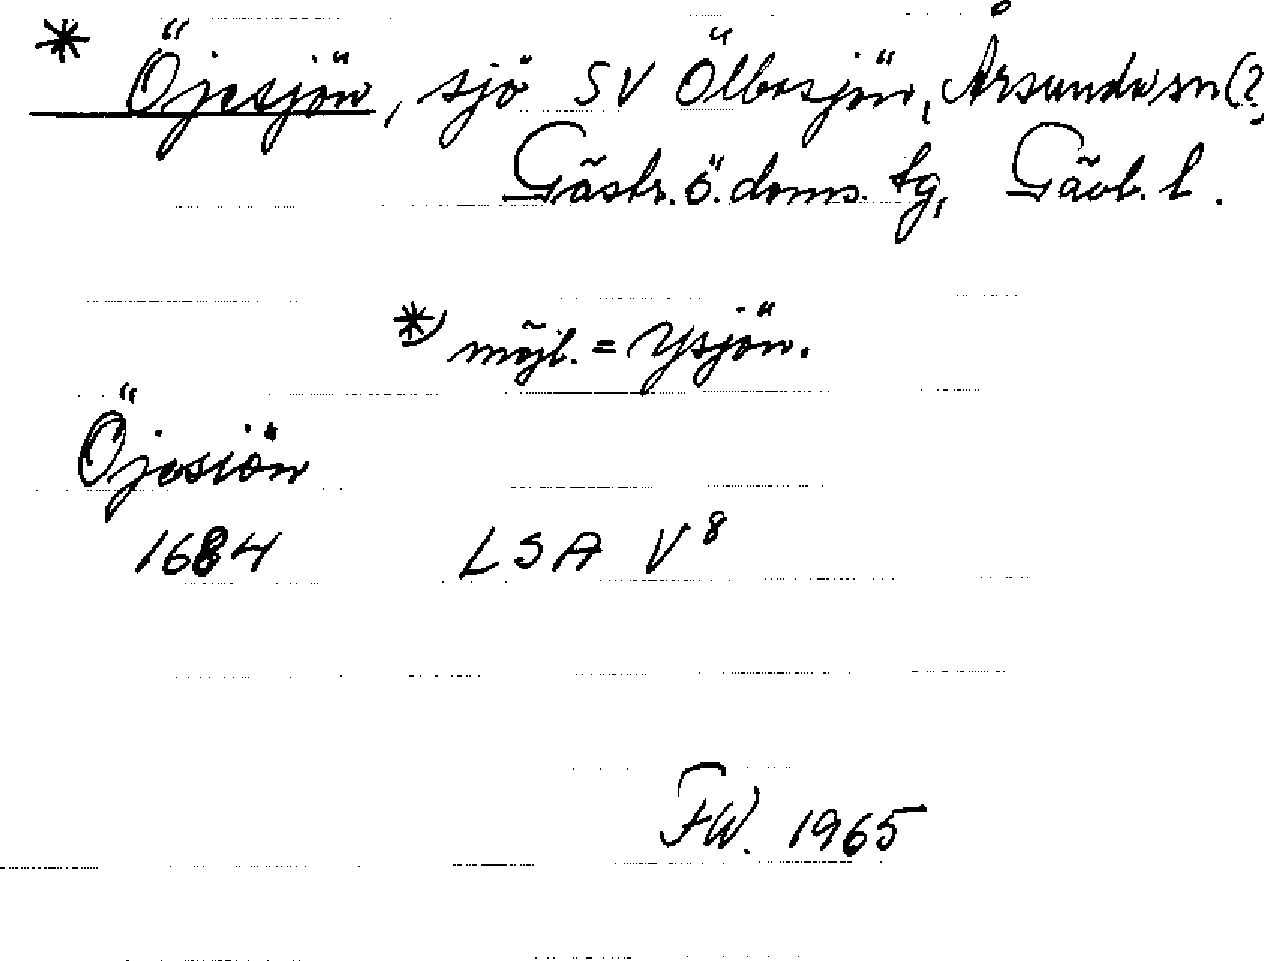 * Öjesjön, sjö SV Ölbosjön, Årsunda sn(?)
Gästr. ö. doms. tg, Gävl. l.
*) möjl. = Ysjön.
Öjesiön
1684 LSA V8
FW. 1965